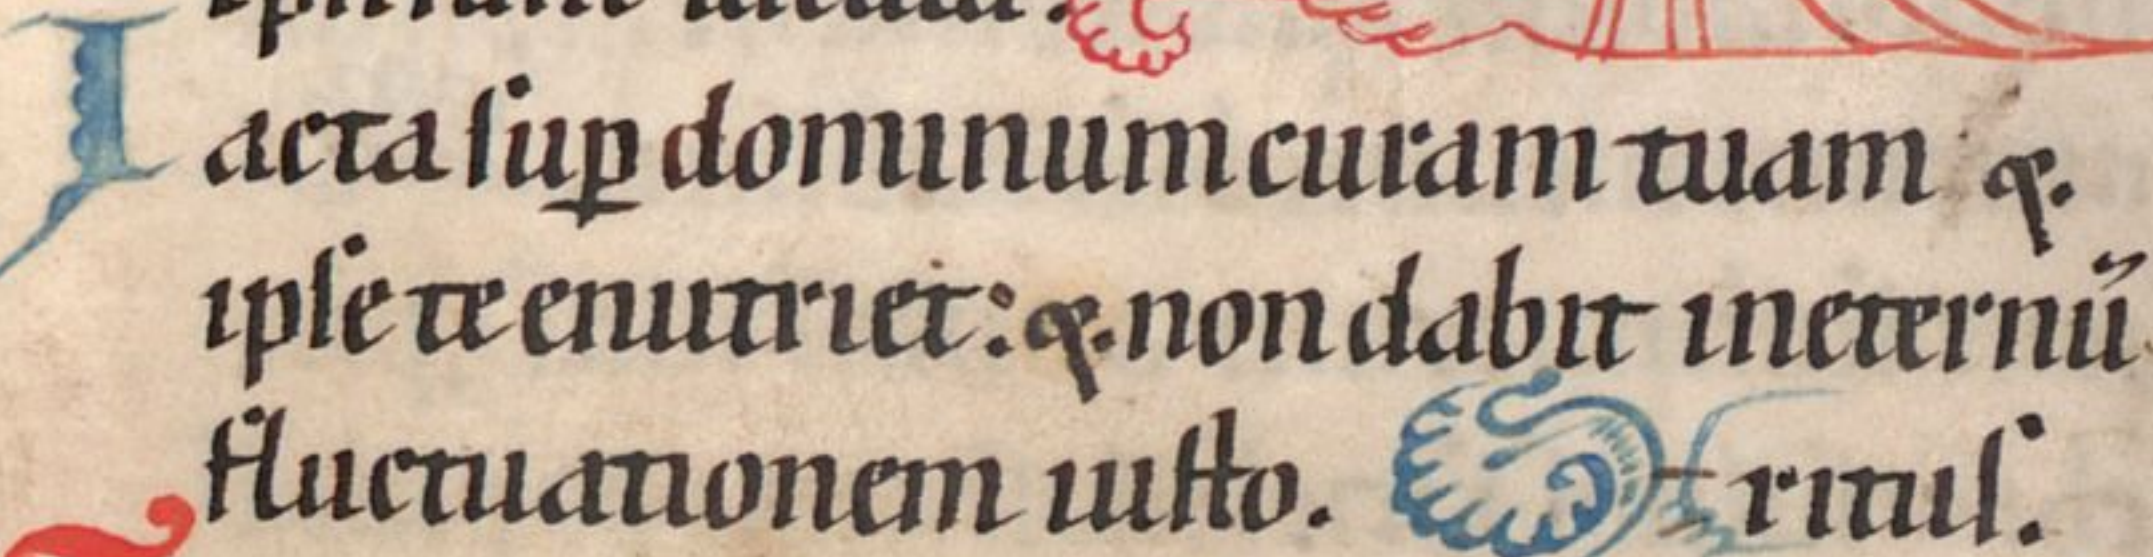 Iacta sup̱ dominum curam tuam ⁊.
ipse te enutriet: ⁊. non dabit ineternū
fluctuationem iusto. ritus.